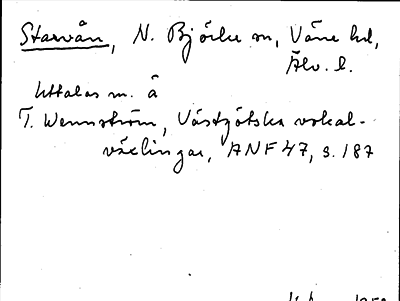 Starvån, N. Björke sn, Väne hd,
Älv. l.
Uttalas m. å
T. Wennström, Västgötska vokal-
växlingar, ANF 47, s. 187